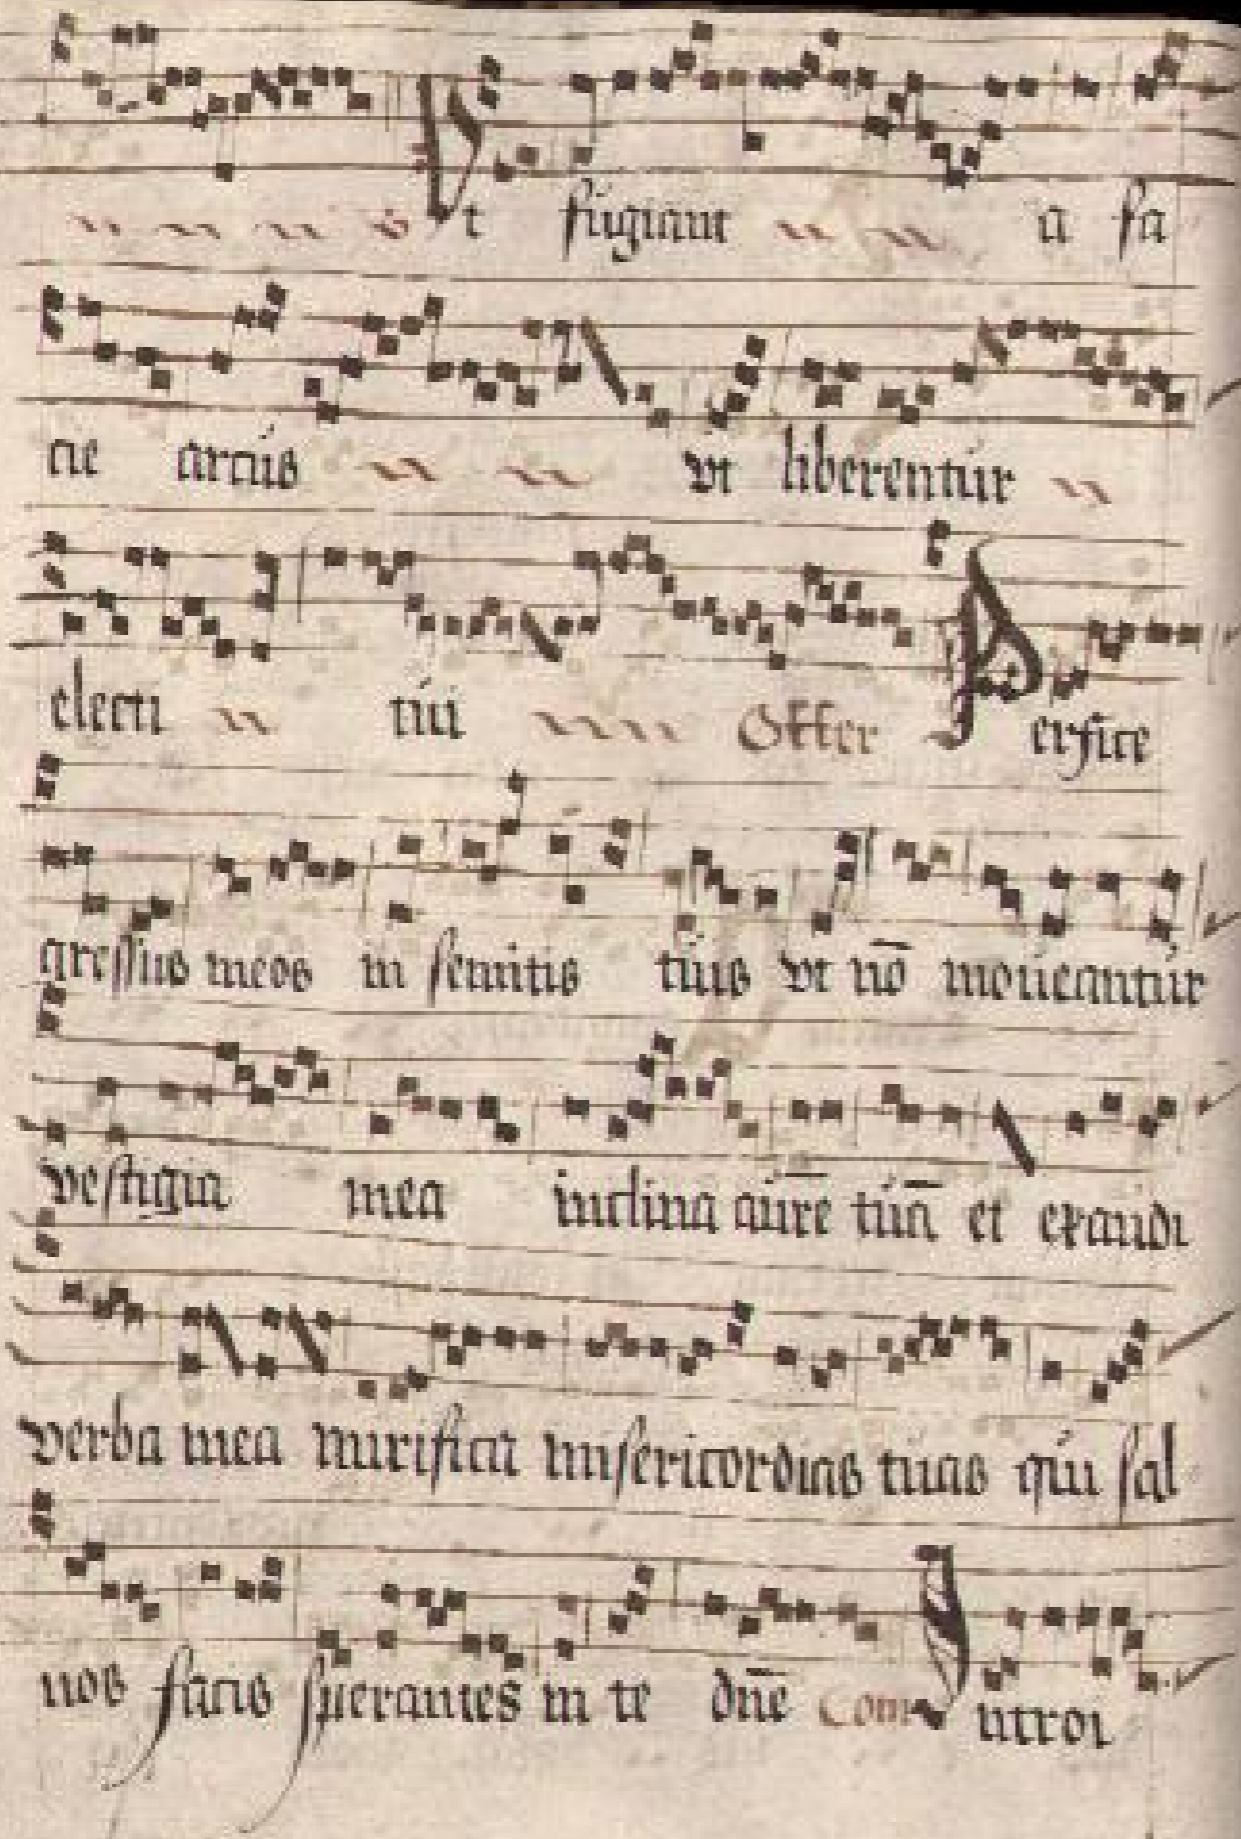 Vt fugiant a fa
cie arcus vt liberentur
electi tui Offer Perfice
gressus meos in semitis tuis vt nō moueantur
vestigia mea inclina aurē tuā et exaudi
verba mea mirifica misericordias tuas qui sal
uos facis sperantes in te dn̄e Com Introi